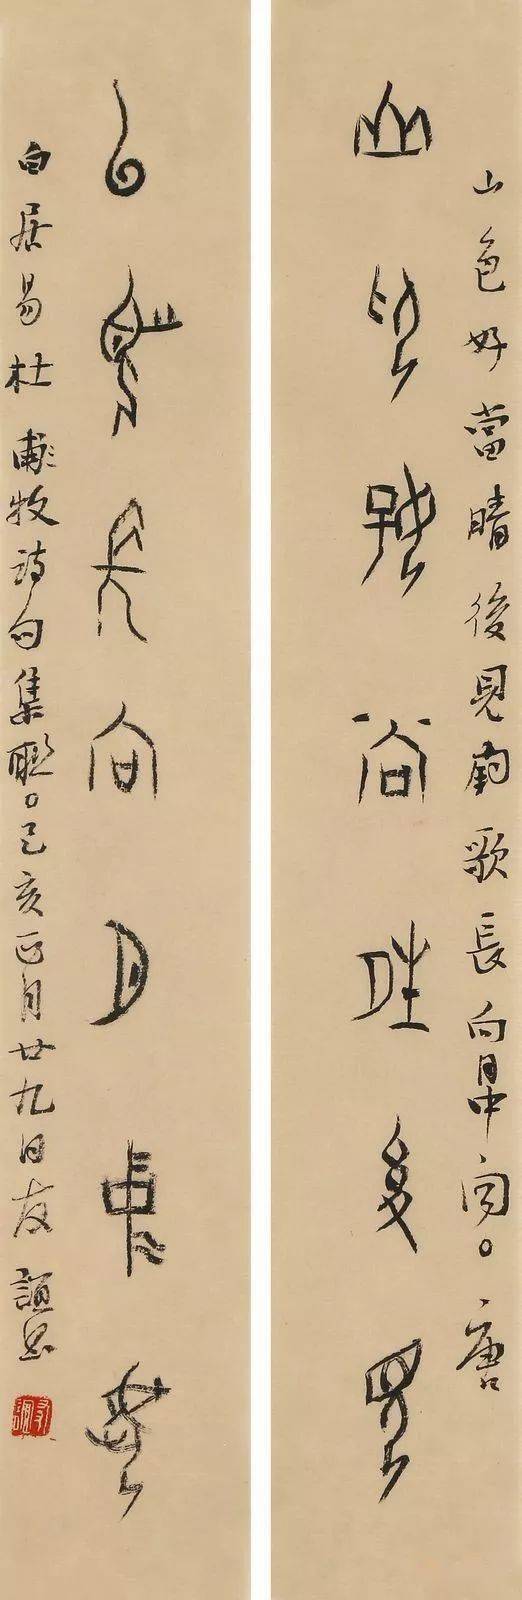 山色好當晴後見歌長向月中聞。唐
山色好當晴後見
長向月中聞
白居易杜甫牧詩句集聯。己亥正月廿九日友誼